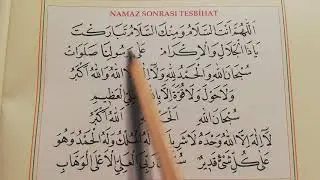 NAMAZ SONRASI TESBİHAT
اَللّٰهُمَّ اَنْتَ السَّلَامُ وَمِنْكَ السَّلَامُ تَبَارَكْتَ
يَاذَا الْجَلَالِ وَالْاِكْرَامِ عَلٰى رَسُولِنَا صَلَوَاتْ
سُبْحَانَ اللّٰهِ وَالْحَمْدُ لِلّٰهِ وَلَا اِلٰهَ اِلَّا اللّٰهُ وَاللّٰهُ اَكْبَرُ
وَلَا حَوْلَ وَلَا قُوَّةَ اِلَّا بِاللّٰهِ الْعَلِيِّ الْعَظِيمِ
سُبْحَانَ اللّٰهِ اَلْحَمْدُ لِلّٰهِ اَللّٰهُ اَكْبَرُ
لَا اِلٰهَ اِلَّا اللّٰهُ وَحْدَهُ لَا شَرِيكَ لَهُ لَهُ الْمُلْكُ وَلَهُ الْحَمْدُ وَهُوَ
عَلٰى كُلِّ شَيْءٍ قَدِيرٌ سُبْحَانَ رَبِّيَ الْعَلِيِّ الْاَعْلَى الْوَهَّابِ